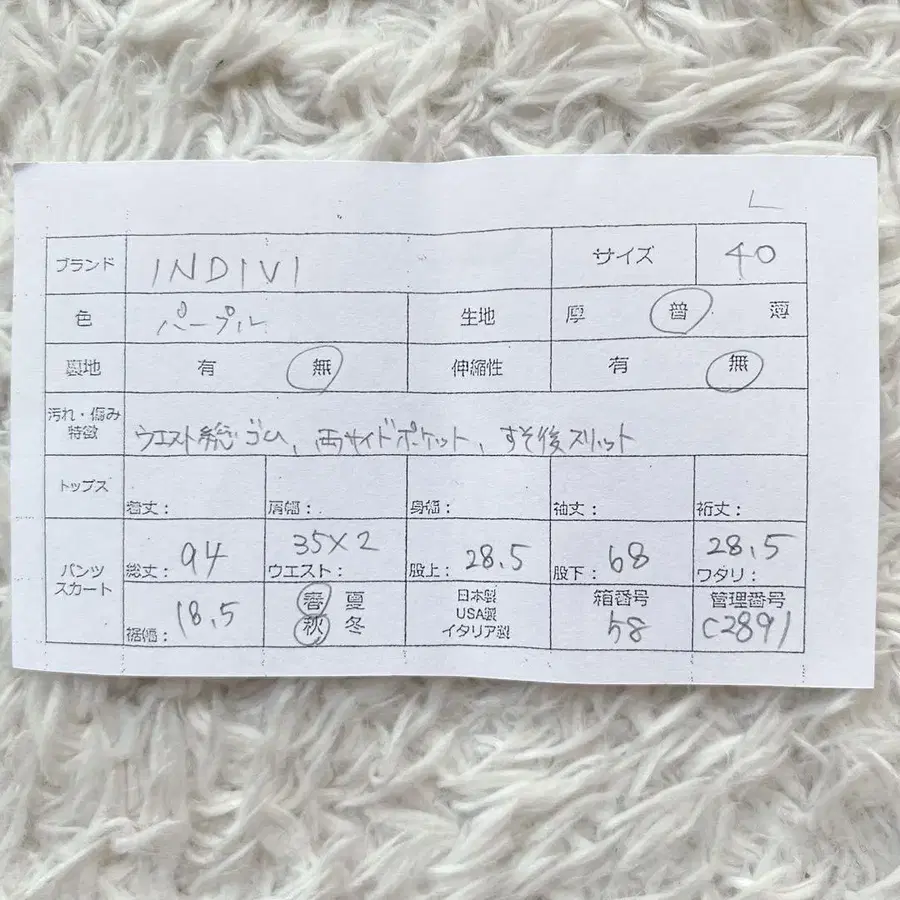 L
ブランド INDIVI サイズ 40
色 パープル 生地 厚 普 薄
裏地 有 無 伸縮性 有 無
汚れ・傷み
特徴 ウエスト総ゴム、両サイドポケット、すそ後スリット
トップス 着丈: 肩幅: 身幅: 袖丈: 裄丈:
パンツ
スカート
総丈: 94
35×2
ウエスト:
股上: 28.5
股下: 68
28.5
ワタリ:
裾幅: 18.5
春 夏
秋 冬
日本製
USA製
イタリア製
箱番号
58
管理番号
C2891